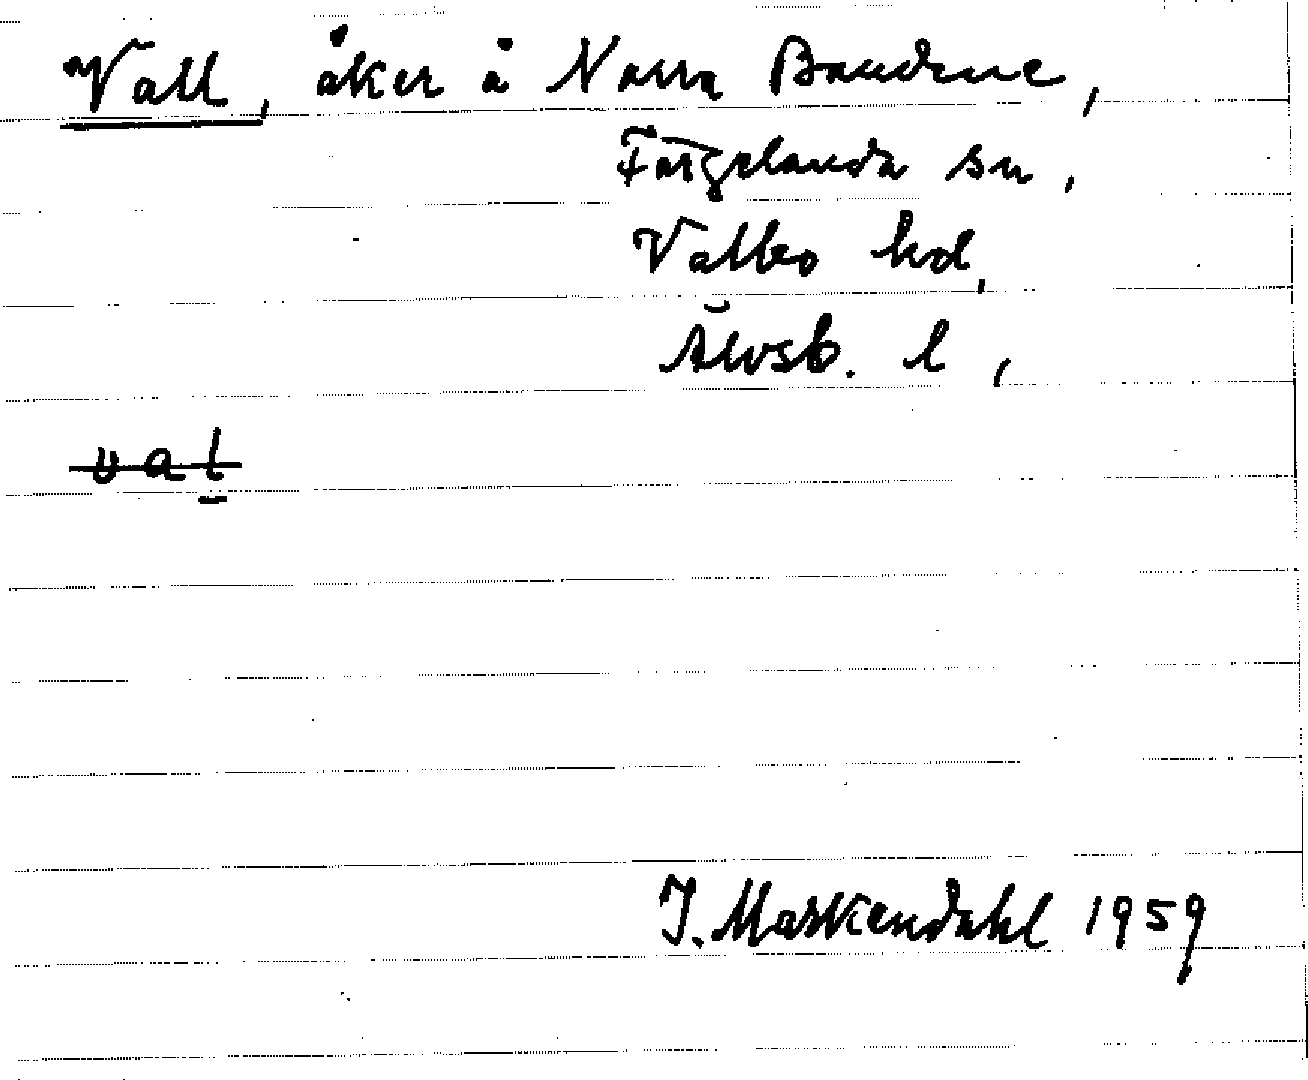 Vall, åker å Norra Bandene,
Färgelanda sn,
Valbo hd,
Älvsb. l,
val
J. Maskendahl 1959